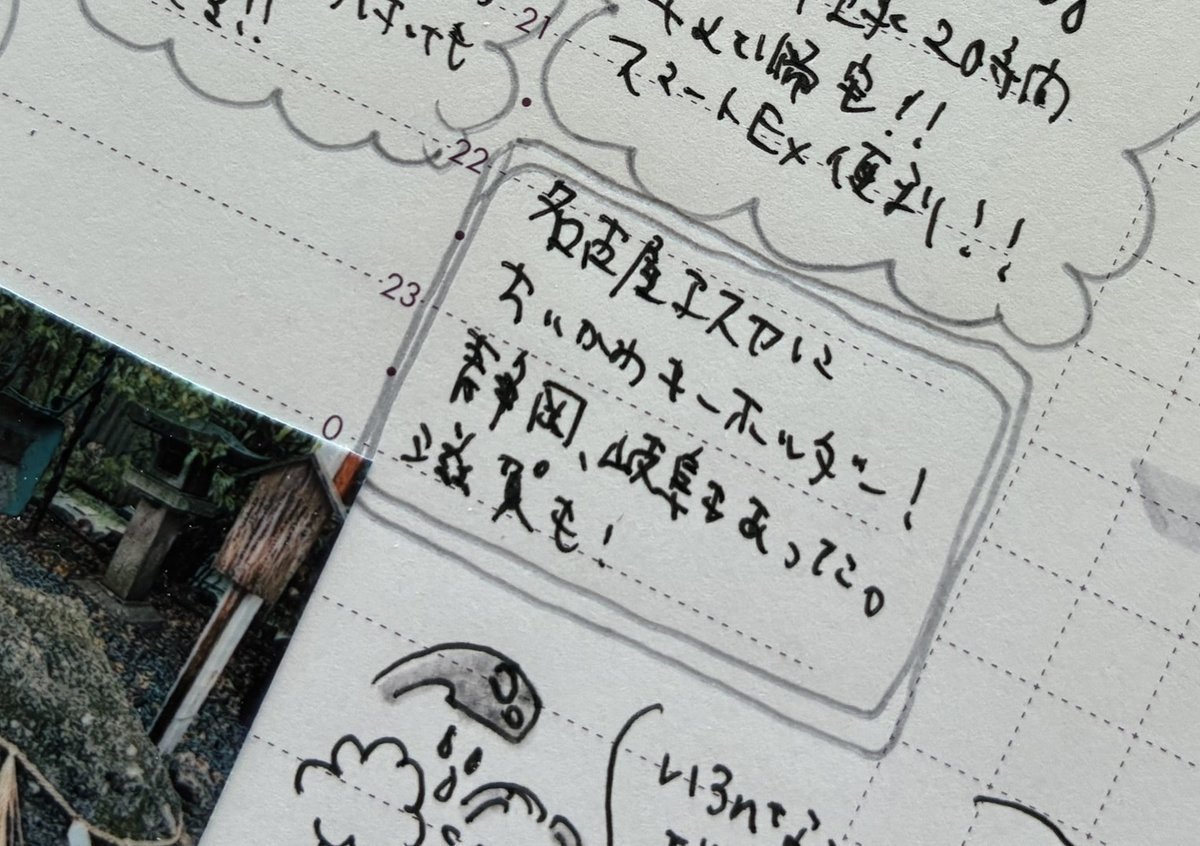 21
22
23
0
20時間
帰宅!!
スマートEX便利!!
名古屋エスカに
ちいかわキーホルダー!
静岡、岐阜もあった。
滋賀も!
いろんな